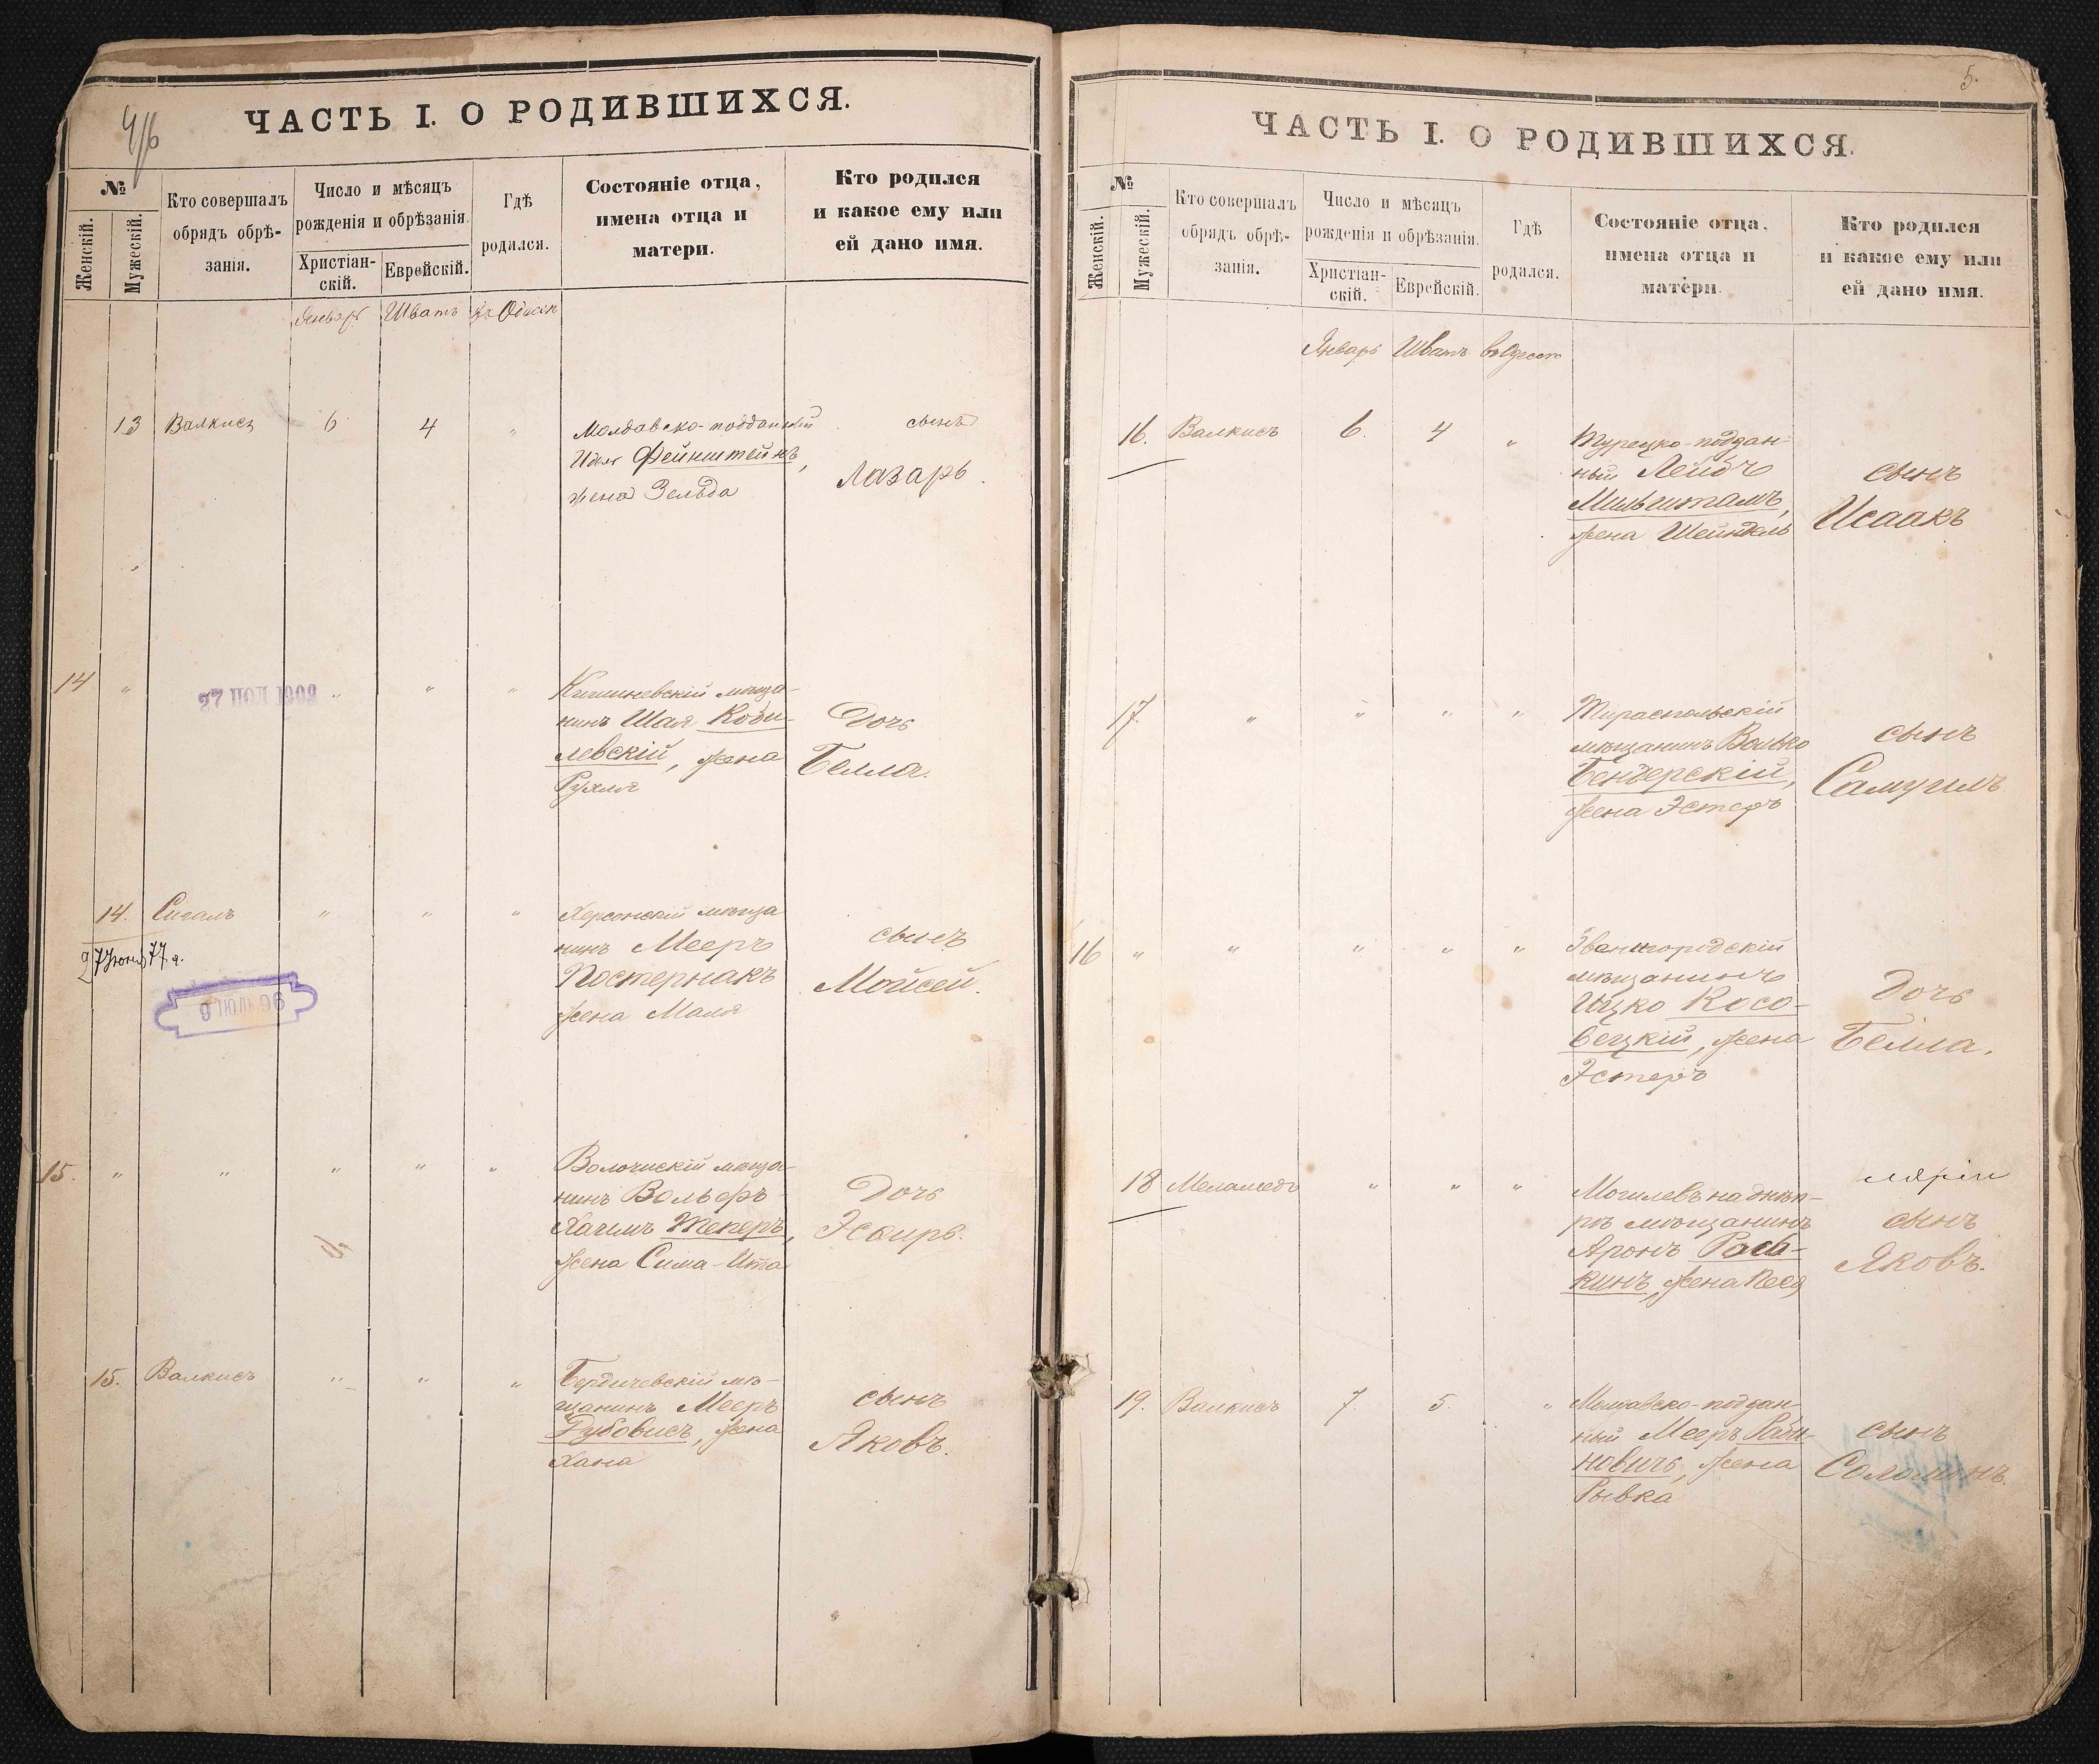 4/6
ЧАСТЬ I. О РОДИВШИХСЯ.
№
Женскій.
Мужескій.
Кто совершалъ
обрядъ обрѣ-
занія.
Число и мѣсяцъ
рожденія и обрѣзанія.
Христіан-
скій.
Еврейскій.
Гдѣ
родился.
Состояніе отца,
имена отца и
матери.
Кто родился
и какое ему или
ей дано имя.
Январь Шватъ Въ Одессѣ
13 Валкисъ 6 4 " Молдавско-подданный
Фейнштейнъ,
жена Зельда
сынъ
Лазарь.
14 " 27 ІЮЛ 1909 " " " Кишиневскій мѣща-
нинъ Шая Коби-
левскій, жена
Рухля
Дочь
Белла.
14. Сигалъ " " " Херсонскій мѣща
нинъ Мееръ
Постернакъ
жена Маля
сынъ
Мойсей.
27 Іюня 77 г.
15. " " " " " мѣща-
нинъ Вольфъ-
Хаимъ Текеръ,
жена Сима-Ита
Дочь
Эсѳирь.
15. Валкисъ " " " Бердичевскій мѣ-
щанинъ Мееръ
Дубовисъ, жена
Хана
сынъ
Яковъ.
5.
ЧАСТЬ I. О РОДИВШИХСЯ.
№
Женскій.
Мужескій.
Кто совершалъ
обрядъ обрѣ-
занія.
Число и мѣсяцъ
рожденія и обрѣзанія.
Христіан-
скій.
Еврейскій.
Гдѣ
родился.
Состояніе отца,
имена отца и
матери.
Кто родился
и какое ему или
ей дано имя.
Январь Шватъ въ Одессѣ
16. Валкисъ 6. 4 " Турецко-поддан-
ный Лейбъ
Мильштамъ,
жена Шейндель
сынъ
Исаакъ
17. " " " " Тираспольскій
мѣщанинъ Волько
Бендерскій,
жена Эстеръ
сынъ
Самуилъ
16 " " " " " Звенигородскій
мѣщанинъ
Ицко Косо-
вецкій, жена
Эстеръ
Дочь
Белла.
18 Меламедъ " " " Могилевъ на днѣп-
рѣ мѣщанинъ
Аронъ
кинъ, жена Песя
сынъ
Яковъ.
19. Валкисъ 7. 5. " Молдавско-поддан-
ный Мееръ Раби-
новичъ, жена
Рывка
сынъ
Соломонъ.